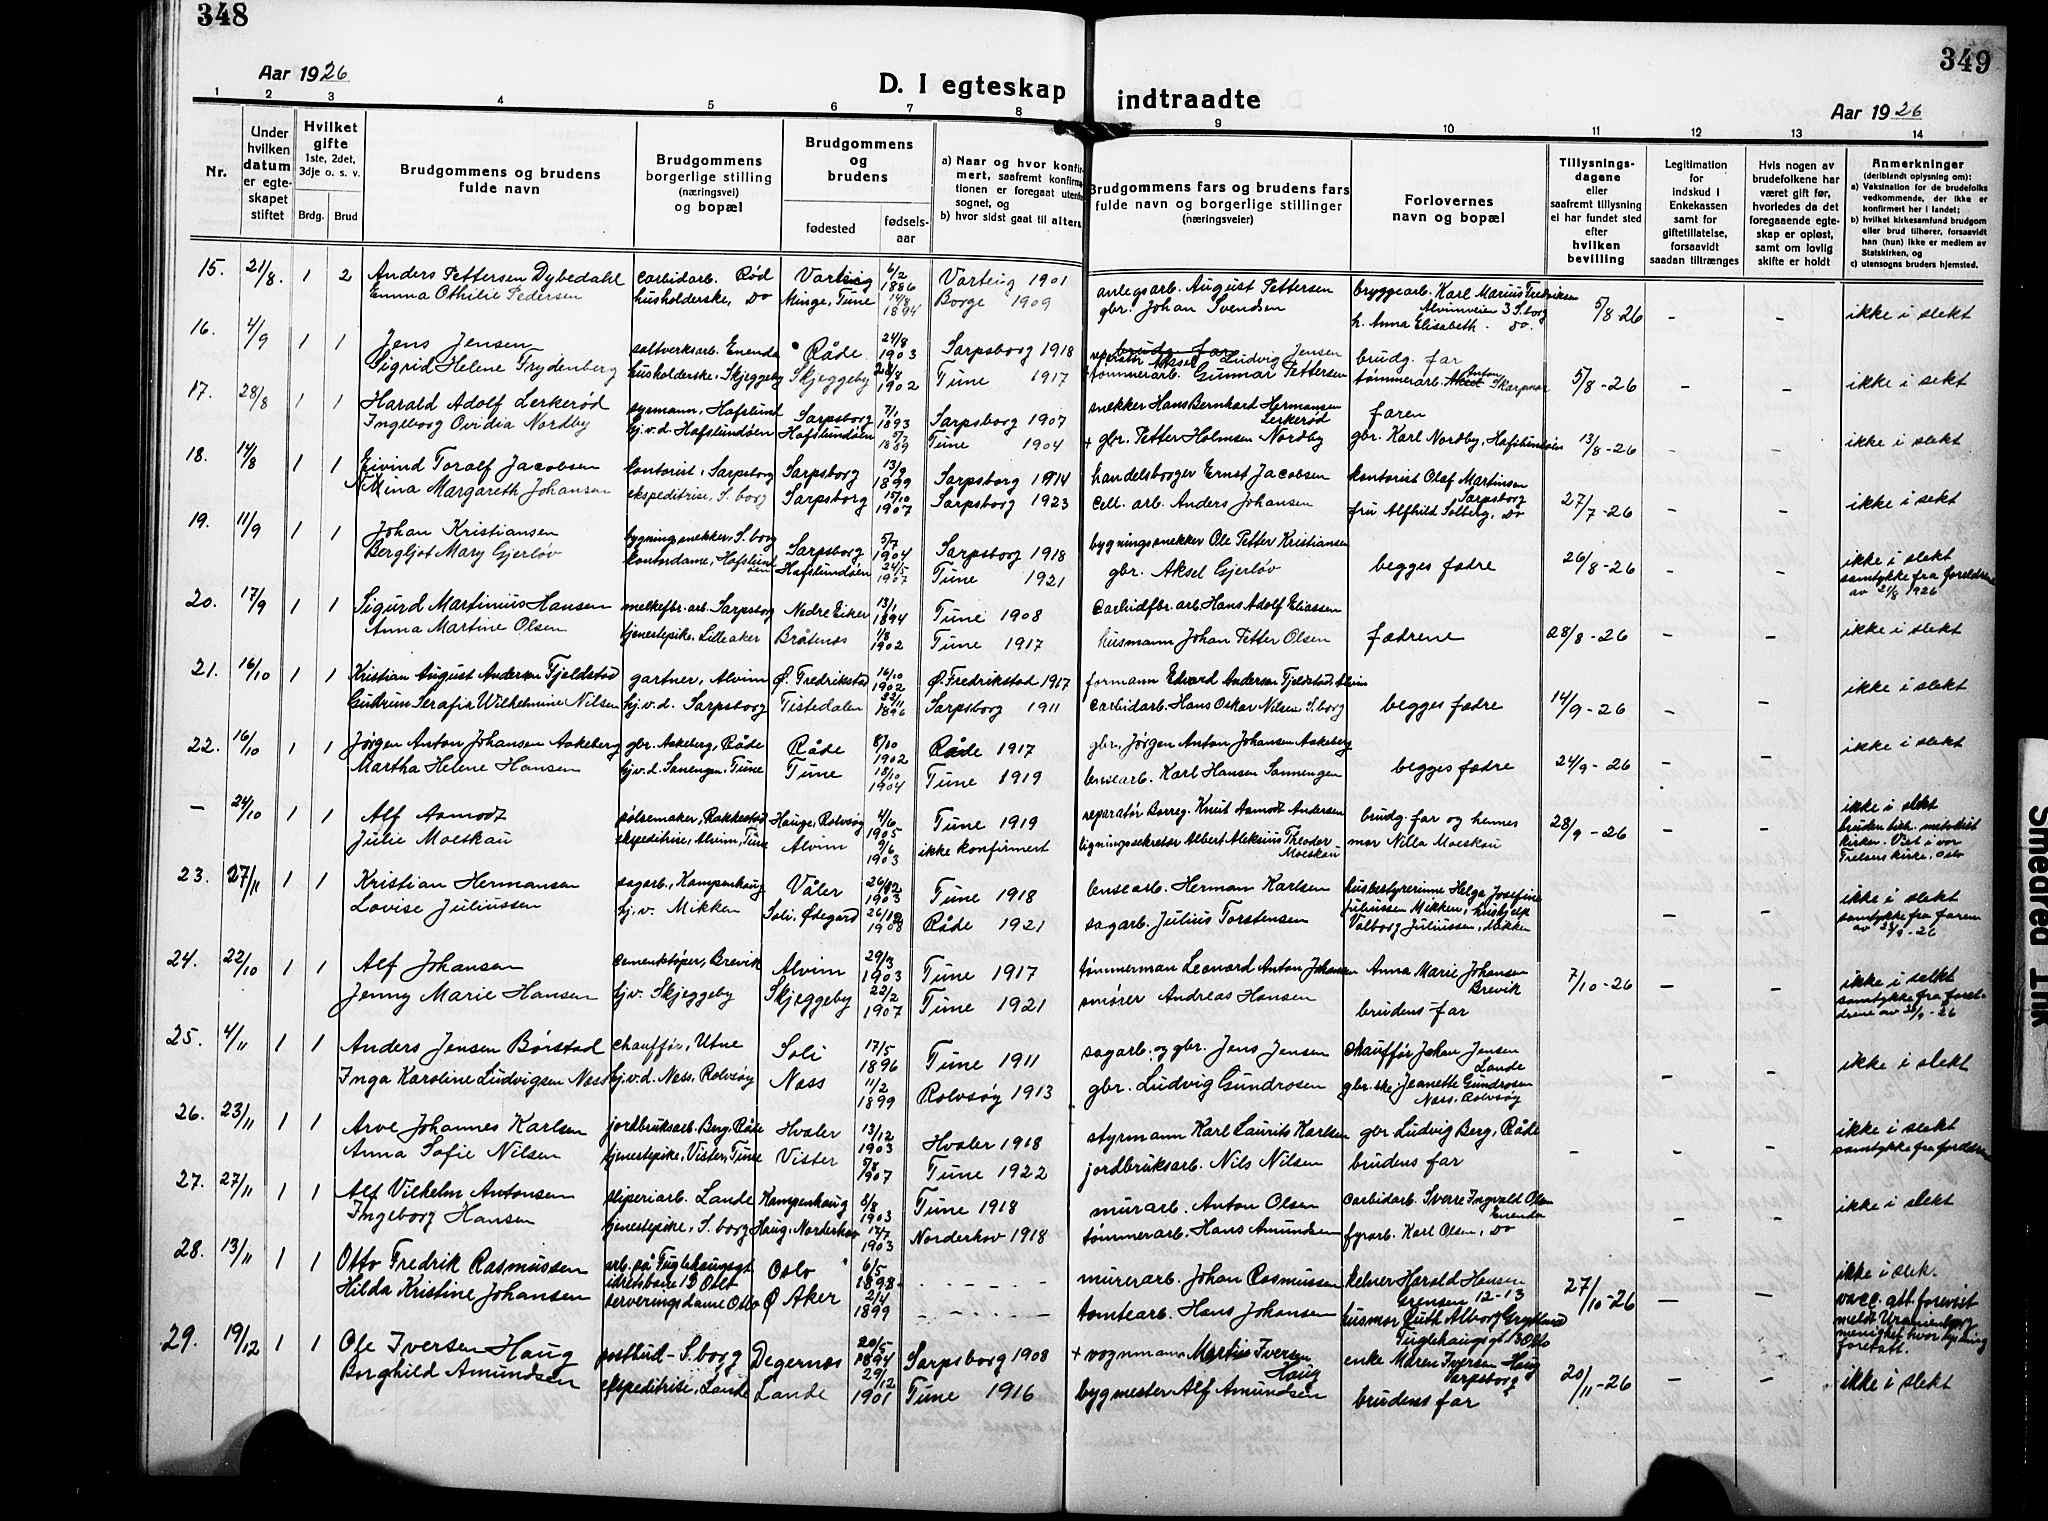 348
349
Aar 1926
D. I egteskap indtraadte
Aar 1926
1 2 3 4 5 6 7 8 9 10 11 12 13 14
Nr.
Under hvilken datum er egteskapet stiftet
Hvilket gifte 1ste, 2det, 3dje o. s. v.
Brdg. Brud
Brudgommens og brudens fulde navn
Brudgommens borgerlige stilling (næringsvei) og bopæl
Brudgommens og brudens
fødested
fødsels-aar
a) Naar og hvor konfirmert, saafremt konfirmationen er foregaat utenfor sognet, og
b) hvor sidst gaat til alters
Brudgommens fars og brudens fars fulde navn og borgerlige stillinger (næringsveier)
Forlovernes navn og bopæl
Tillysnings-dagene eller saafremt tillysning ei har fundet sted efter hvilken bevilling
Legitimation for indskud i Enkekassen samt for giftetillatelse, forsaavidt saadan tiltrænges
Hvis nogen av brudefolkene har været gift før, hvorledes da det foregaaende egteskap er opløst, samt om lovlig skifte er holdt
Anmerkninger (deriblandt oplysning om):
a) Vaksination for de brudefolks vedkommende, der ikke er konfirmert her i landet;
b) hvilket kirkesamfund brudgom eller brud tilhører, forsaavidt han (hun) ikke er medlem av Statskirken, og
c) utensogns bruders hjemsted.
15. 21/8. 1 2 Anders Pettersen Dybedahl carbidarb. Rød Varteig 6/2 1886 Varteig 1901 anlegsarb. August Pettersen bryggearb. Karl Marius Fredriksen Alvimveien 3 S.borg 5/8-26 - - ikke i slekt
Emma Othilie Pedersen husholderske, do Minge, Tune 14/8 1894 Borge 1909 gbr. Johan Svendsen h. Anna Elisabeth do.
16. 4/9 1 1 Jens Jensen saltverksarb. Enenda Råde 24/8 1903 Sarpsborg 1918 reparatør Aksel Ludvig Jensen brudg. far 5/8-26 - - ikke i sekt
Sigrid Helene Frydenberg husholderske, Skjeggeby Skjeggeby 28/8 1902 Tune 1917 tømmerarb. Gunnar Pettersen tømmerarb. Anton Skarpnor
17. 28/8 1 1 Harald Adolf Lerkerød sysmann, Hafslund Sarpsborg 7/1 1893 Sarpsborg 1907 snekker Hans Bernhard Hermansen Lerkerød faren 13/8-26 - - ikke i slekt
Ingeborg Ovidia Nordby hj.v.d. Hafslundøen Hafslundøen 5/7 1889 Tune 1904 + gbr. Petter Holmsen Nordby gbr. Karl Nordby, Hafslundøen
18. 14/8 1 1 Eivind Toralf Jacobsen kontorist, Sarpsborg Sarpsborg 13/9 1899 Sarpsborg 1914 handelsborger Ernst Jacobsen kontorist Olaf Martinsen Sarpsborg 27/7-26 - - ikke i sekt
Mina Margareth Johansen ekspeditrise, S.borg Sarpsborg 15/10 1907 Sarpsborg 1923 Cell. arb. Anders Johansen fru Alfhild Solberg, Do
19. 11/9 1 1 Johan Kristiansen bygningssnekker, S.borg Sarpsborg 5/7 1904 Sarpsborg 1918 bygningssnekker Ole Petter Kristiansen begges fædre 26/8-26 - - ikke i slekt
Bergljot Mary Gjerløv kontordame, Hafslundøen Hafslundøen 24/5 1907 Tune 1921 gbr. Aksel Gjerløv samtykke fra foreldrene av 21/8 1926
20. 17/9 1 1 Sigurd Martinius Hansen melkefbr. arb. Sarpsborg Nedre Eiker 13/1 1894 Tune 1908 Carbidfbr. arb Hans Adolf Eliassen fædrene 28/8-26 - - ikke i slekt
Anna Martine Olsen tjenestepike, Lilleaker Bråtenæs 1/8 1902 Tune 1917 husmann Johan Petter Olsen
21. 16/10 1 1 Kristian August Andersen Fjeldstad gartner, Alvim Ø. Fredrikstad 16/10 1902 Ø. Fredrikstad 1917 formann Edvard Andersen Fjeldstad, Alvim begges fædre 14/9-26 - - ikke i slekt
Gudrun Serafia Wilhelmine Nilsen hj.v.d. Sarpsborg Tistedalen 22/11 1896 Sarpsborg 1911 Carbidarb. Hans Oskar Nilsen S.borg
22. 16/10 1 1 Jørgen Anton Johansen Aakeberg gbr. Aakeberg, Råde Råde 8/10 1902 Råde 1917 gbr. Jørgen Anton Johansen Aakeberg begges fædre 24/9-26 - - ikke i slekt
Martha Helene Hansen hj.v.d. Sanengen, Tune Tune 18/10 1904 Tune 1919 lensearb. Karl Hansen Sannengen
— 24/10 1 1 Alf Aamodt pølsemaker, Rakkestad Hauge, Rolvsøy 4/6 1905 Tune 1919 reparatør Borreg. Knut Aamodt Andersen brudg. far og hennes 28/9-26 - - ikke i slekt
Julie Moeskau ekspeditrise, Alvim, Tune Alvim 9/6 1903 ikke konfirmert ligningssekretær Albert Aleksius Theodor Moeskau mor Nilla Moeskau bruden tilh. metodist kirken. Viet i vor Frelsers kirke, Oslo
23. 27/11 1 1 Kristian Hermansen sagarb., Kampenhaug Våler 26/12 1903 Tune 1918 lensearb. Herman Karlsen husbestyrerinne Helga Josefine Juliussen Mikken, hushjelp - - ikke i slekt
Lovise Juliussen hj.v. Mikken Soli, Ødegård 26/12 1908 Råde 1921 sagarb. Julius Torstensen Valborg Juliussen, Mikken samtykke fra faren
24. 22/10 1 1 Alf Johansen cementstøper, Brevik Alvim 29/3 1903 Tune 1917 tømmerman Leonard Anton Johansen Anna Marie Johansen Brevik 7/10-26 - - ikke i selkt
Jenny Marie Hansen hj.v. Skjeggeby Skjeggeby 22/2 1907 Tune 1921 smører Andreas Hansen brudens far samtykke fra foreldrene
25. 4/11 1 1 Anders Jensen Børstad chauffør, Utne Soli 17/5 1896 Tune 1911 sagarb. og gbr. Jens Jensen chauffør Johan Jensen Lande - - ikke i slekt
Inga Karoline Ludvigsen Næss hj.v.d. Næss, Rolvsøy Næss 11/2 1899 Rolvsøy 1913 gbr. Ludvig Gundrosen gbr.ske Jeanette Gundrosen Næss, Rolvsøy
26. 23/11 1 1 Arve Johannes Karlsen jordbruksarb. Berg, Råde Hvaler 13/12 1903 Hvaler 1918 styrmann Karl Laurits Karlsen gbr Ludvig Berg, Råde - - - ikke i slekt
Anna Sofie Nilsen tjenestepike, Vister, Tune Vister 5/8 1907 Tune 1922 jordbruksarb. Nils Nilsen brudens far samtykke fra foreldrene
27. 27/11 1 1 Alf Vilhelm Antonsen sliperiarb. Lande Kampenhaug 8/8 1903 Tune 1918 murarb. Anton Olsen Carbidarb. Sverre Ingvald Olsen Enenda - - ikke i slekt
Ingeborg Hansen tjenestepike, S.borg Haug, Norderhov 17/7 1903 Norderhov 1918 tømmerarb. Hans Amundsen fyrarb. Karl Olsen, Do
28. 13/11 1 1 Otto Fredrik Rasmussen arb. på Fuglehaugsgt idretsbane 13 Oslo Oslo 6/5 1898 - - - - murerarb. Johan Rasmussen kelner Harald Hansen Grensen 12-13 27/10-26 - - ikke i slek.
Hilda Kristine Johansen serveringsdame Oslo Ø Aker 2/4 1899 - - - - tomtearb. Hans Johansen husmor Ruth Alborg Fuglehaugsgt. 13 Oslo vacc. att. forevist meldt Uranienborg menighet hvor lysning foretatt.
29. 19/12 1 1 Ole Iversen Haug postbud - S.borg Degernes 20/5 1894 Sarpsborg 1908 + vognmann Martin Iversen Haug enke Maren Iversen Haug Sarpsborg 20/11-26 - - ikke i slekt
Borghild Amundsen ekspeditrise, Lande Lande 29/12 1901 Tune 1916 bygmester Alf Amundsen brudens far
Smedred Ink